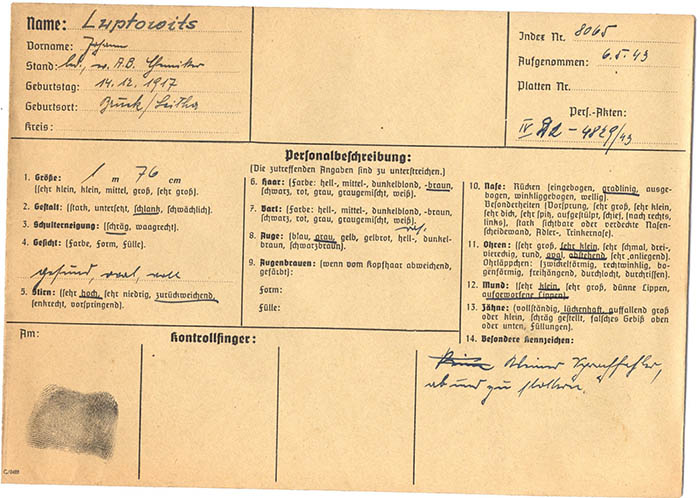 Name: Luptowits
Vorname: Johann
Stand: led., v. A.B. Chemiker
Geburtstag: 14.12.1917
Geburtsort: Bruck/Leitha
Kreis:
Index Nr. 8065
Aufgenommen: 6.5.43
Platten Nr.
Pers.-Akten:
IV - 4829/43
Personalbeschreibung:
1. Größe: 1 m 76 cm
(sehr klein, klein, mittel, groß, sehr groß).
2. Gestalt: (stark, untersetzt, schlank, schwächlich).
3. Schulterneigung: (schräg, waagrecht).
4. Gesicht: (Farbe, Form, Fülle).
gesund, oval, voll
5. Stirn: (sehr hoch, sehr niedrig, zurückweichend,
senkrecht, vorspringend).
(Die zutreffenden Angaben sind zu unterstreichen.)
6. Haar: (Farbe: hell-, mittel-, dunkelblond, -braun,
schwarz, rot, grau, graugemischt, weiß).
7. Bart: (Farbe: hell-, mittel-, dunkelblond, -braun,
schwarz, rot, grau, graugemischt, weiß). ras.
8. Auge: (blau, grau, gelb, gelbrot, hell-, dunkel-
braun, schwarzbraun).
9. Augenbrauen: (wenn vom Kopfhaar abweichend,
gefärbt):
Form:
Fülle:
10. Nase: Rücken (eingebogen, gradlinig, ausge-
bogen, winkliggebogen, wellig).
Besonderheiten (Vorsprung, sehr groß, sehr klein,
sehr dick, sehr spitz, aufgestülpt, schief, (nach rechts,
links), stark sichtbare oder verdeckte Nasen-
scheidewand, Adler-, Trinkernase).
11. Ohren: (sehr groß, sehr klein, sehr schmal, drei-
viereckig, rund, oval, abstehend, sehr anliegend).
Ohrläppchen: (zwickelförmig, rechtwinklig, bo-
genförmig, freihängend, durchlocht, durchrissen).
12. Mund: (sehr klein, sehr groß, dünne Lippen,
aufgeworfene Lippen).
13. Zähne: (vollständig, lückenhaft, auffallend groß
oder klein, schräg gestellt, falsches Gebiß oben
oder unten, Füllungen).
14. Besondere Kennzeichen:
Keine Kleiner Sprachfehler,
ab und zu stottern."
Am:
Kontrollfinger: